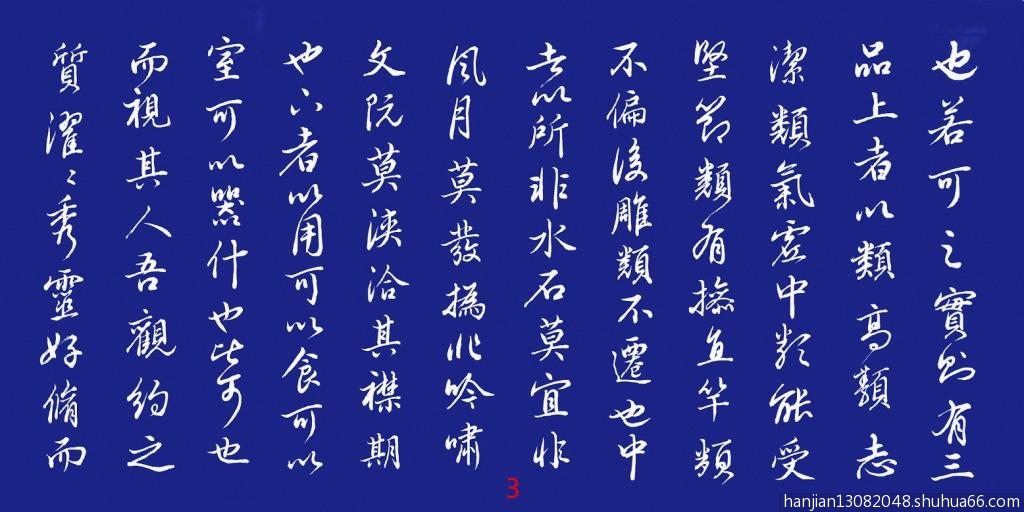 也若可之實則有三
品上者以類高類志
潔類氣虛中類能受
堅節類有操直竿類
不偏後雕類不遷也中
者以所非水石莫宜非
風月莫發撝非吟嘯
文阮莫浹洽其襟期
也下者以用可以食可以
室可以器什也皆可也
而視其人吾觀約之
質濯〻秀靈好脩而
3
hanjian13082048.shuhua66.com